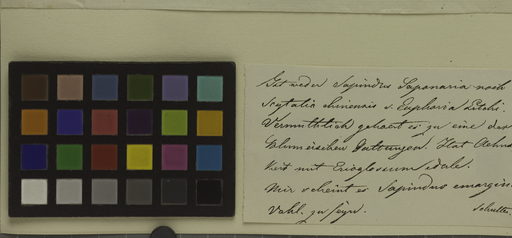 Ist weder Sapindus Saponaria noch
Scytalia chinensis s. Euphoria Litchi.
Vermuthlich gehoert es zu eine der
Blumeischen Gattungen. Hat Aehn
keit mit Erioglossum edule.
Mir scheint es Sapindus emargin
Vahl. zu seyn.